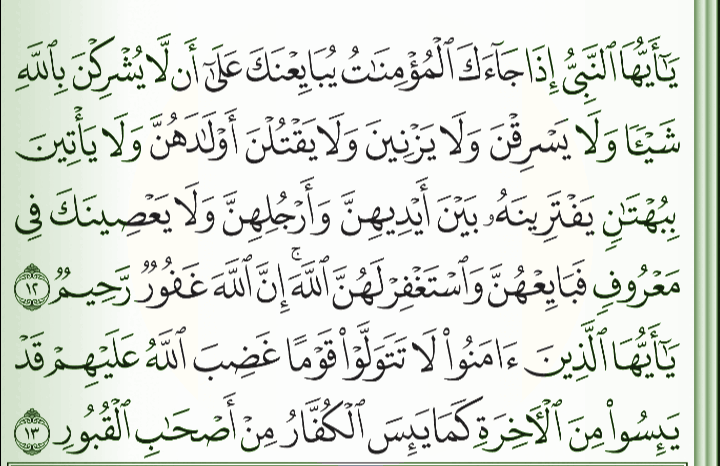 يَٰٓأَيُّهَا ٱلنَّبِيُّ إِذَا جَآءَكَ ٱلْمُؤْمِنَٰتُ يُبَايِعْنَكَ عَلَىٰٓ أَن لَّا يُشْرِكْنَ بِٱللَّهِ
شَيْـًٔا وَلَا يَسْرِقْنَ وَلَا يَزْنِينَ وَلَا يَقْتُلْنَ أَوْلَٰدَهُنَّ وَلَا يَأْتِينَ
بِبُهْتَٰنٍ يَفْتَرِينَهُۥ بَيْنَ أَيْدِيهِنَّ وَأَرْجُلِهِنَّ وَلَا يَعْصِينَكَ فِي
مَعْرُوفٍ فَبَايِعْهُنَّ وَٱسْتَغْفِرْ لَهُنَّ ٱللَّهَ ۚ إِنَّ ٱللَّهَ غَفُورٌ رَّحِيمٌ ١٢
يَٰٓأَيُّهَا ٱلَّذِينَ ءَامَنُوا۟ لَا تَتَوَلَّوْا۟ قَوْمًا غَضِبَ ٱللَّهُ عَلَيْهِمْ قَدْ
يَئِسُوا۟ مِنَ ٱلْءَاخِرَةِ كَمَا يَئِسَ ٱلْكُفَّارُ مِنْ أَصْحَٰبِ ٱلْقُبُورِ ١٣